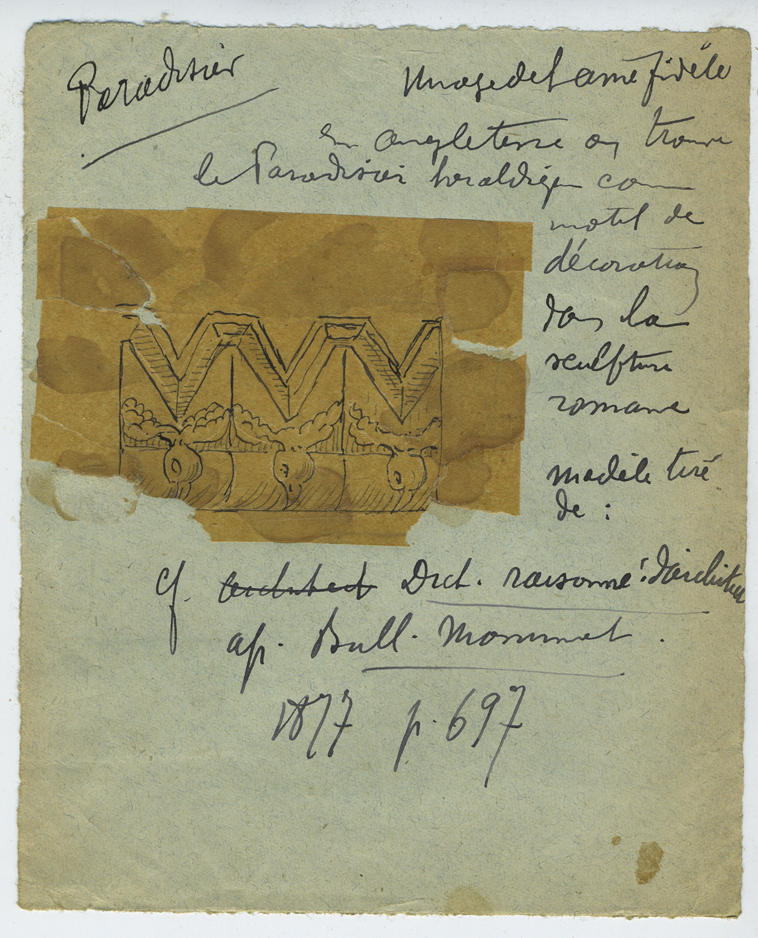 Paradisier
Image de l'ame fidèle
En angleterre on trouve
le Paradisier heraldique com
motif de
décoration
dans la
sculpture
romane
modèle tiré
de :
cf. architect Dict. raisonné d'architec
ap. Bull. Monumet.
1877 p. 697